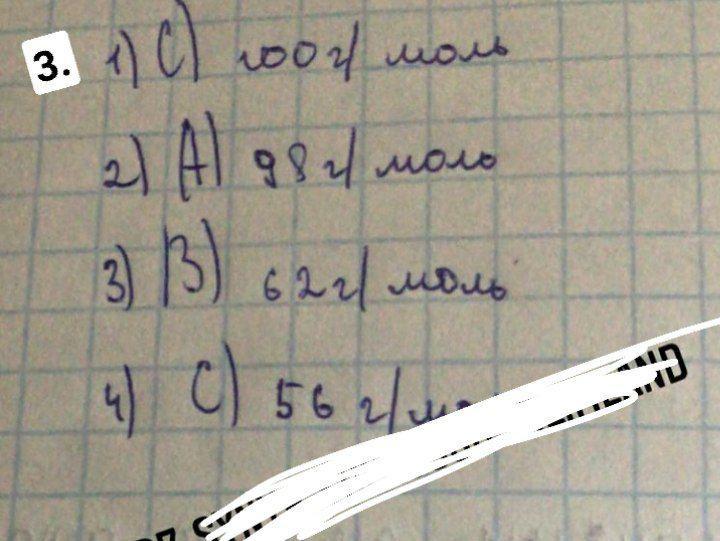 3. 1) C) 100 г/моль
2) A) 98 г/моль
3) B) 62 г/моль
4) C) 56 г/